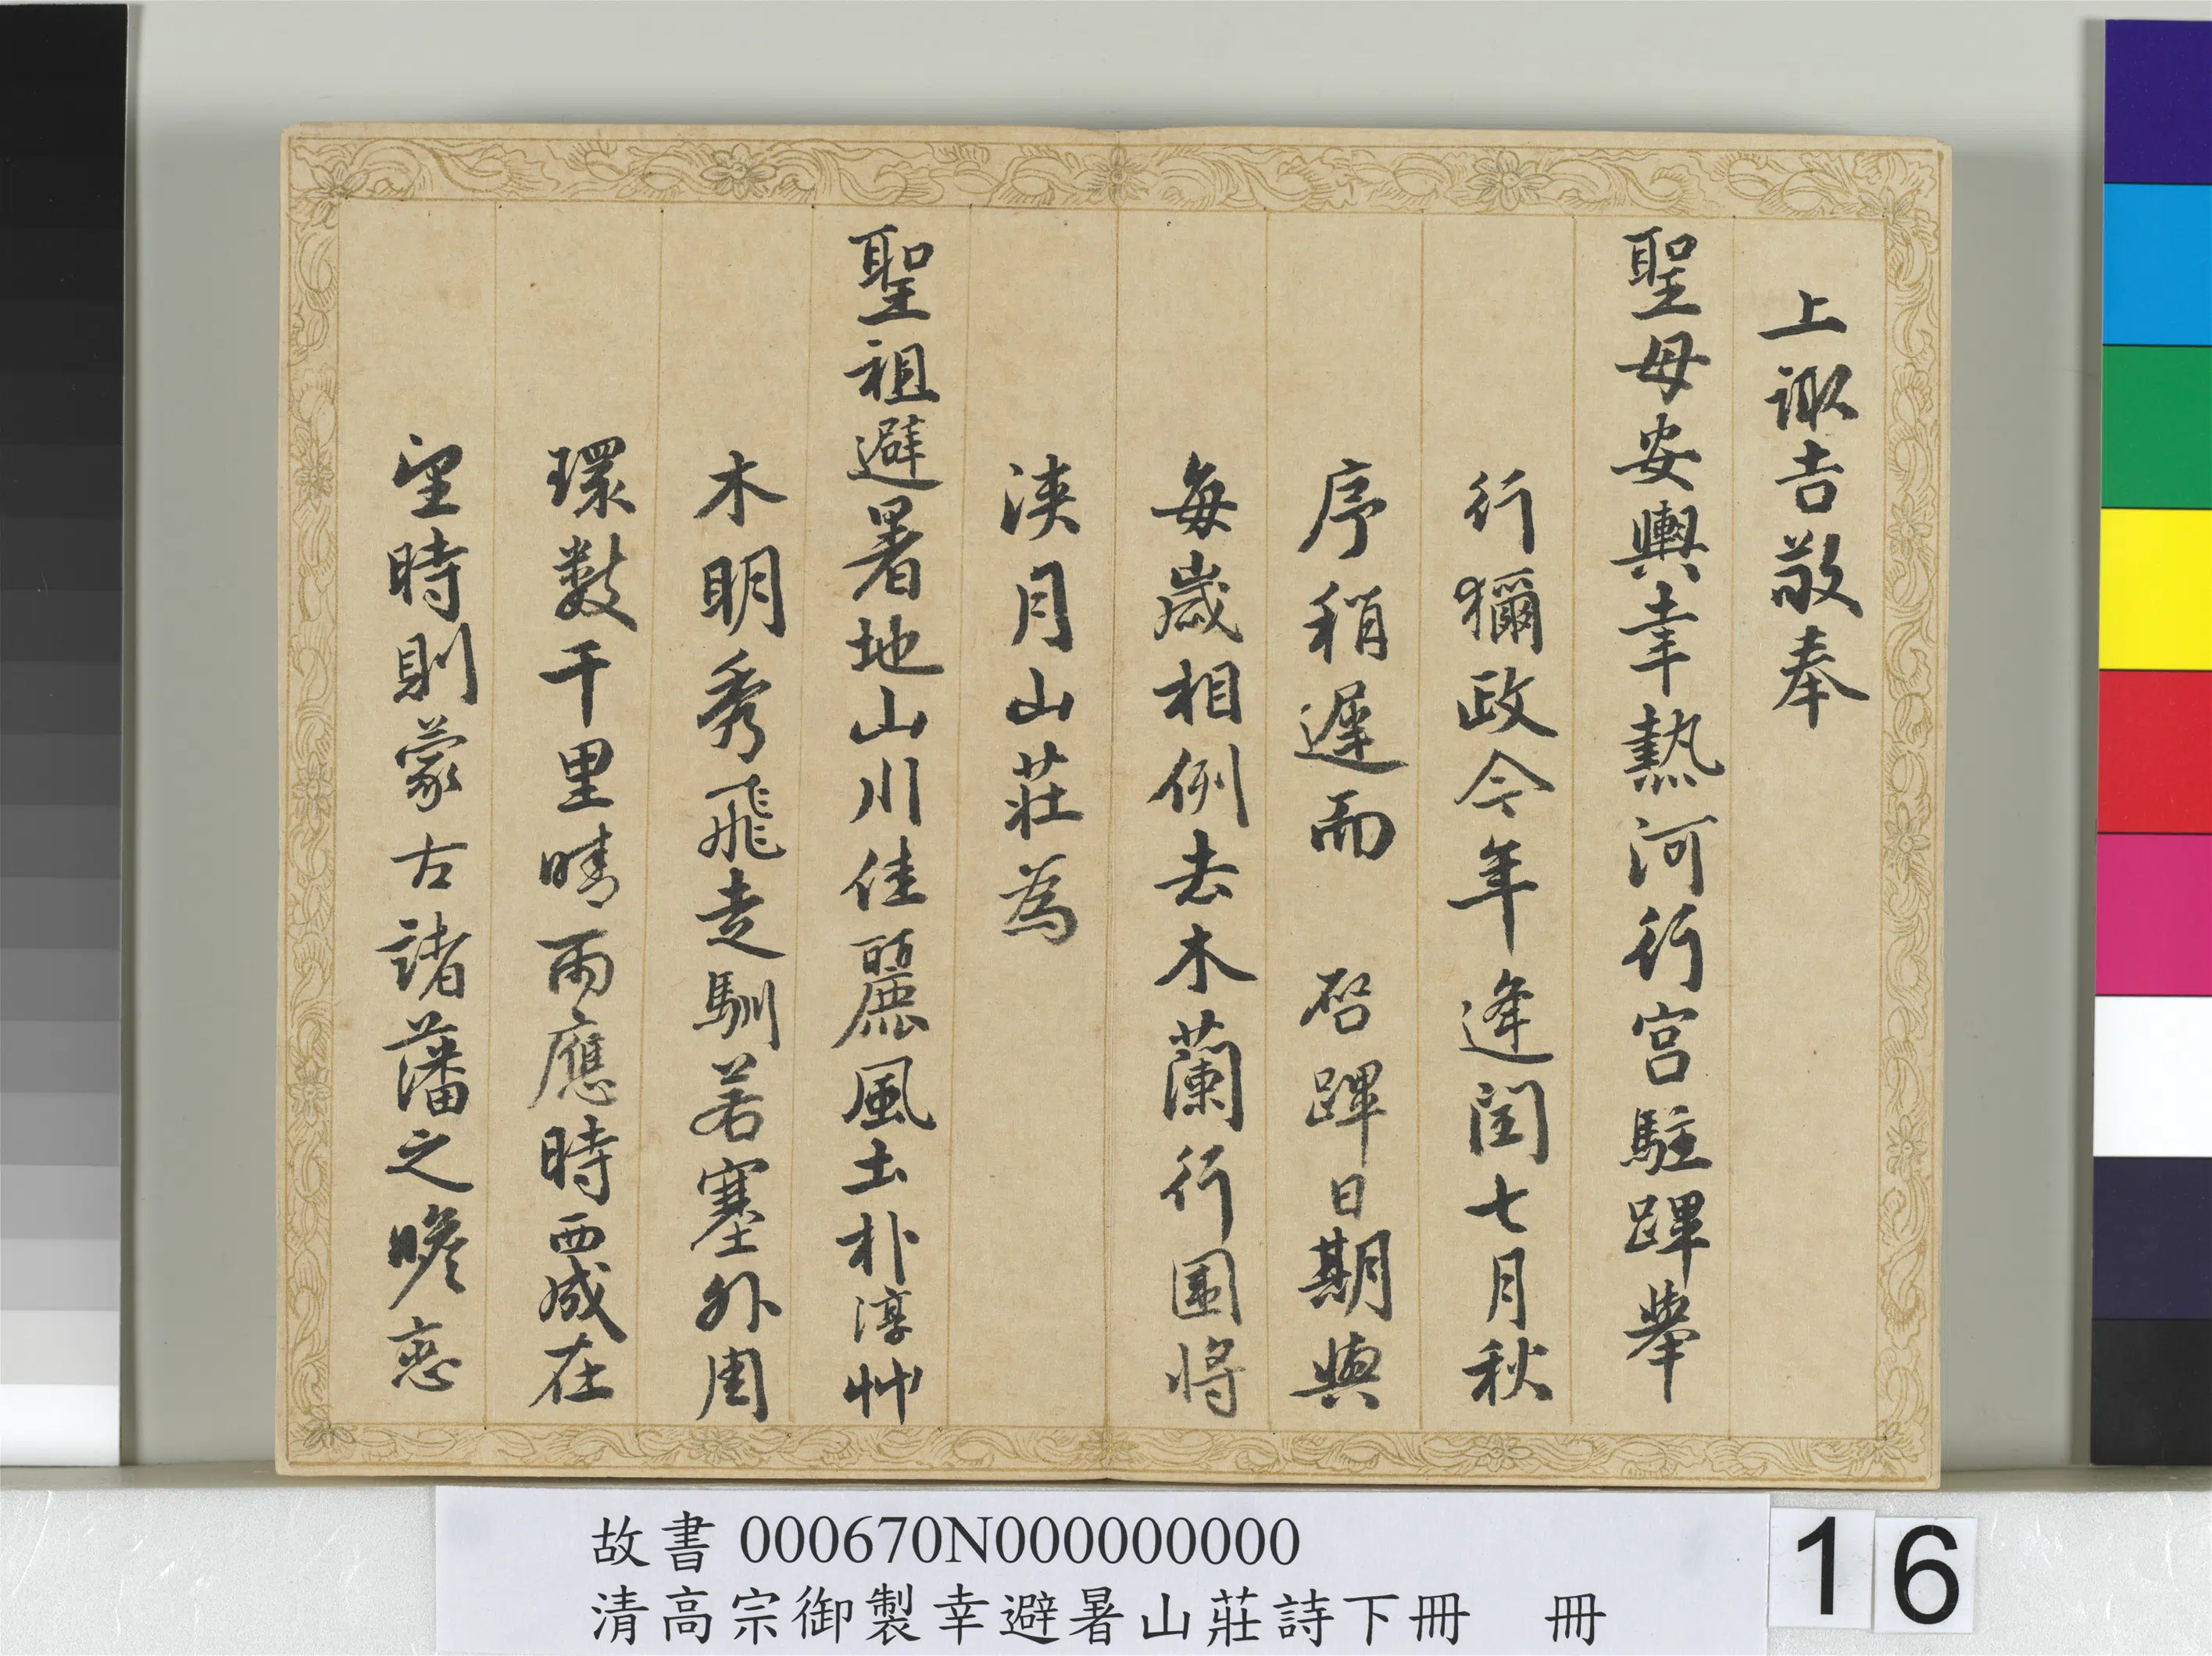 上諏吉敬奉
聖母安輿幸熱河行宮駐蹕舉
行獮政今年逢閏七月秋
序稍遲而 啓蹕日期與
每歲相例去木蘭行圍將
浹月山莊為
聖祖避暑地山川佳麗風土朴淳艸
木明秀飛走馴若塞外周
環數千里晴雨應時西成在
望時則蒙古諸藩之瞻戀
故書 000670N000000000
清高宗御製幸避暑山莊詩下冊 冊
16